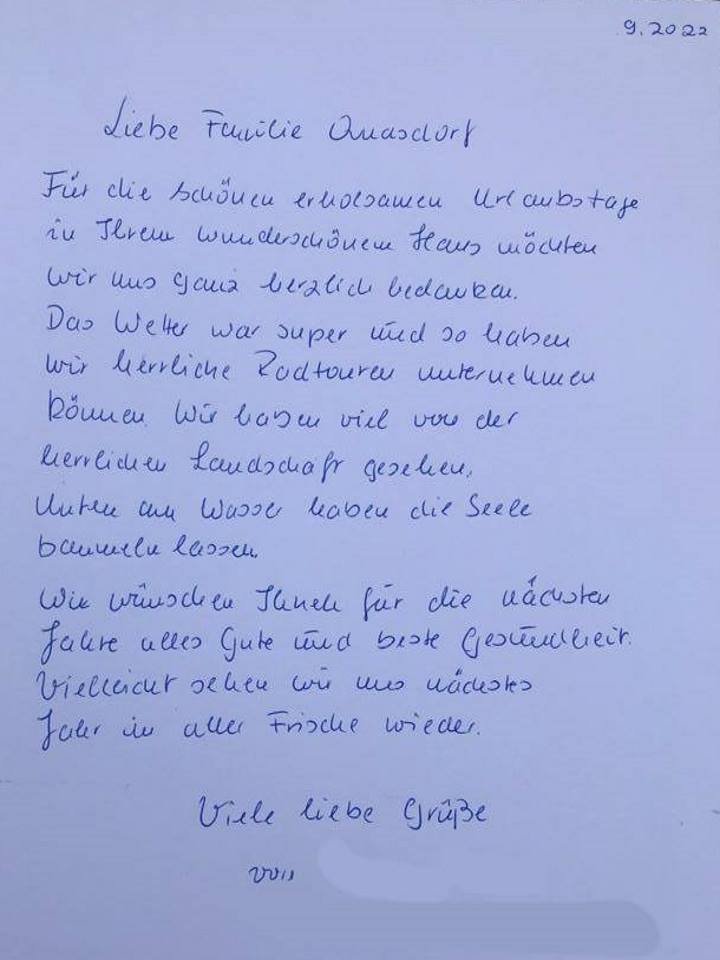 9.2022
Liebe Familie Quasdorf
Für die schönen erholsamen Urlaubstage
in Ihrem wunderschönem Haus möchten
wir uns ganz herzlich bedanken.
Das Wetter war super und so haben
wir herrliche Radtouren unternehmen
können. Wir haben viel von der
herrlichen Landschaft gesehen,
Unten am Wasser haben die Seele
baumeln lassen.
Wir wünschen Ihnen für die nächsten
Jahre alles Gute und beste Gesundheit.
Vielleicht sehen wir uns nächstes
Jahr in aller Frische wieder.
Viele liebe Grüße
von